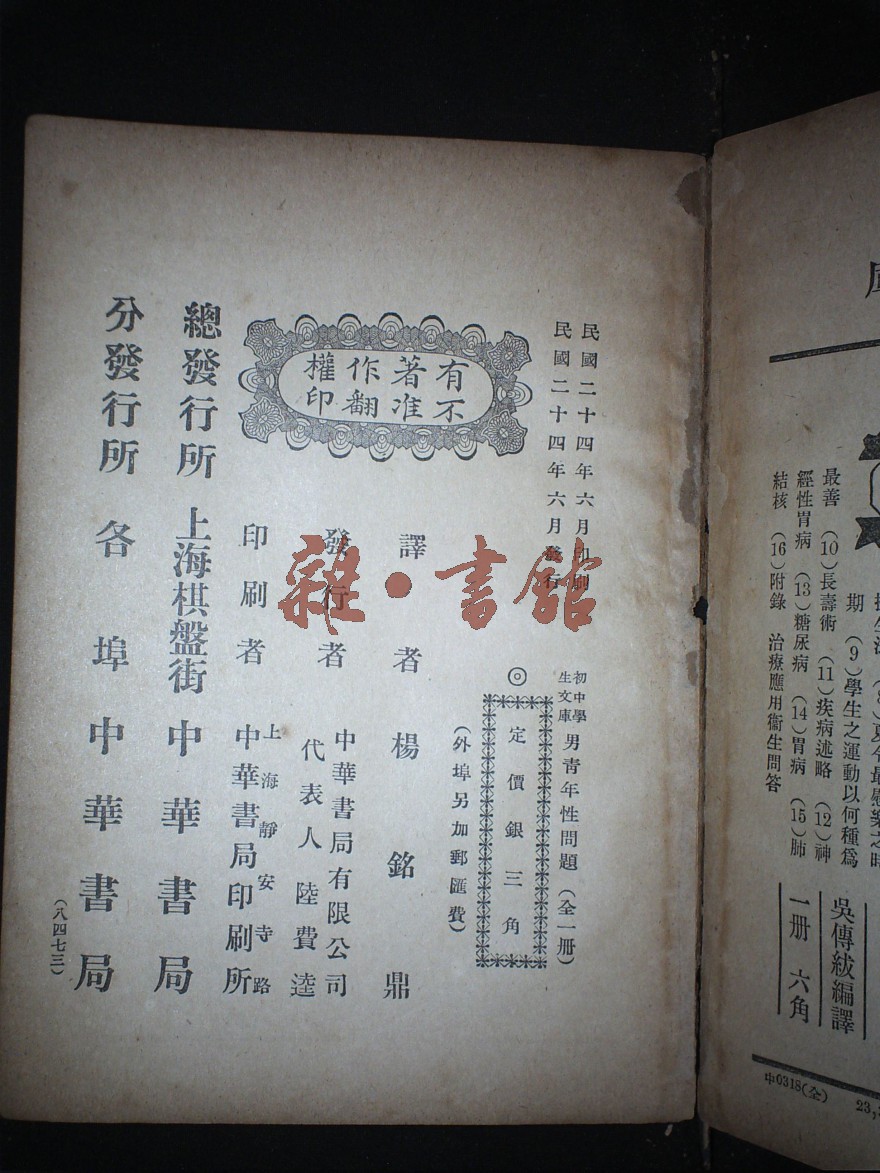 民國二十四年六月印刷
民國二十四年六月發行
初中學生文庫 男青年性問題（全一册）
◎定價銀三角
（外埠另加郵匯費）
有不
著准
作翻
權印
譯者 楊銘鼎
發行者 中華書局有限公司
代表人 陸費逵
印刷者 上海靜安寺路
中華書局印刷所
總發行所 上海棋盤街 中華書局
分發行所 各埠中華書局
（八四七三）
雜·書館
期 （9）學生之運動以何種爲
最善 （10）長壽術 （11）疾病述略 （12）神
經性胃病 （13）糖尿病 （14）胃病 （15）肺
結核 （16）附錄 治療應用衞生問答
吳傳紱編譯
一册 六角
中0318(全)